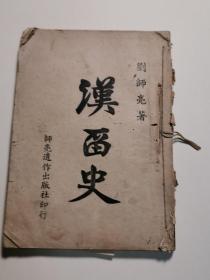 劉師亮著
漢留史
師亮遺作出版社印行